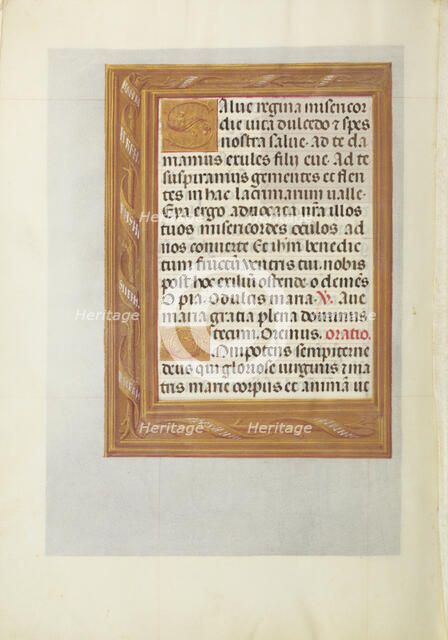 Salue regina misericor
die uita dulcedo ⁊ spes
nostra salue. Ad te da
mamus exules filij eue. Ad te
suspiramus gementes et flen
tes in hac lacrimarum ualle.
Eya ergo aduocata nr̄a illos
tuos misericordes oculos ad
nos conuerte Et ihm̄ benedic
tum fructū uentris tui. nobis
post hoc exiliū ostende. o clemēs
O pia. O dulcis maria. V. Aue
maria gratia plena dominus
tecum. Oremus. oratio.
Omnipotens sempiterne
deus qui gloriose uirginis ⁊ ma
tris marie corpus et animā ut
Heritage
Heritage
Heritage
Heritage
Heritage
Heritage